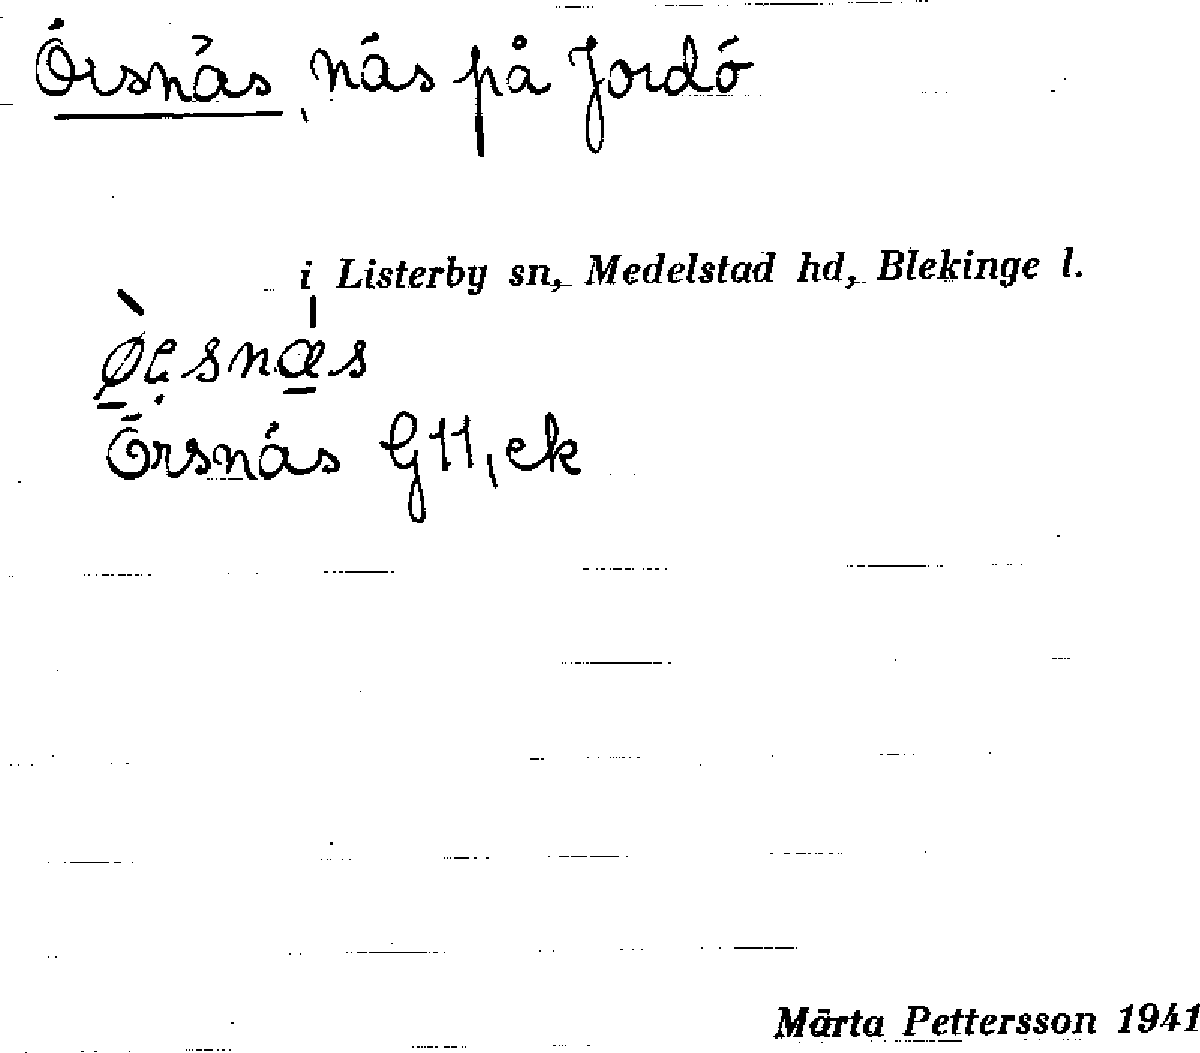 Örsnäs, näs på Jordö
i Listerby sn, Medelstad hd, Blekinge l.
Örsnäs G11, ek
Märta Pettersson 1941